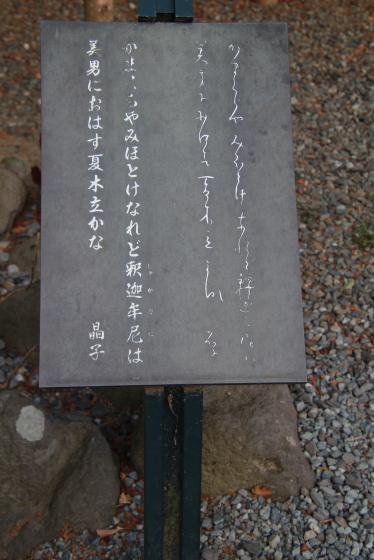 かまくらやみほとけなれど釋迦牟尼は
美男におはす夏木立かな 晶子
かまくらやみほとけなれど釈迦牟尼は
しゃかむに
美男におはす夏木立かな
晶子